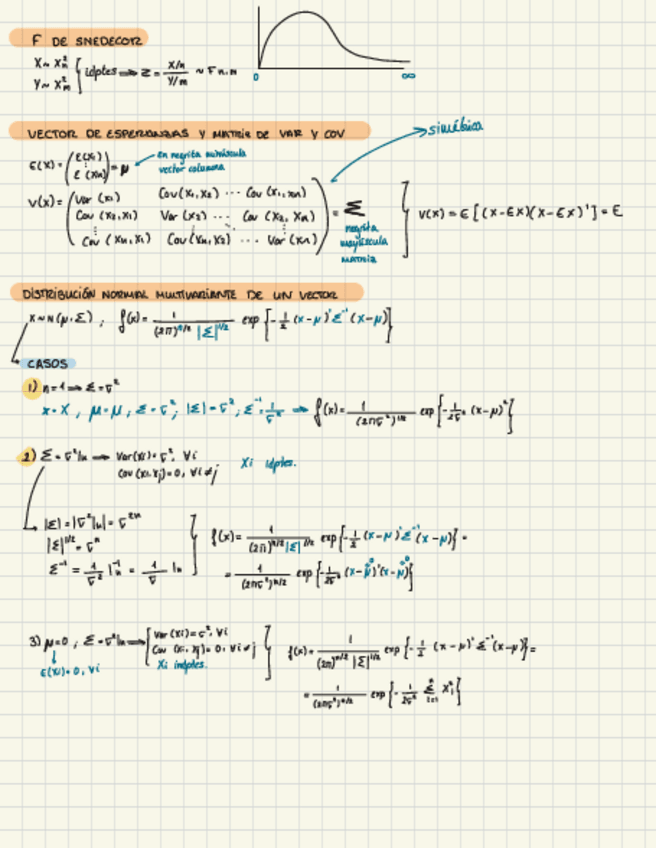 F DE SNEDECOR
X ~ X²n
Y ~ X²m } idptes ⟹ Z = (X/n)/(Y/m) ~ F n,m
0 ∞
VECTOR DE ESPERANZAS Y MATRIZ DE VAR Y COV
simétrica
E(X) = (E(X₁) ⋮ E(Xn)) = μ
en negrita minúscula
vector columna
V(X) = (Var (X₁) Cov (X₁,X₂) ··· Cov (X₁,Xn)
Cov (X₂,X₁) Var (X₂) ··· Cov (X₂,Xn)
⋮
Cov (Xn,X₁) Cov (Xn,X₂) ··· Var (Xn)) = Σ
negrita
mayúscula
matriz
V(X) = E [(X-EX)(X-EX)'] = Σ
DISTRIBUCIÓN NORMAL MULTIVARIANTE DE UN VECTOR
X ~ N(μ,Σ) , f(x) = 1/((2π)^(n/2) |Σ|^(1/2)) exp {-1/2 (x-μ)' Σ⁻¹ (x-μ)}
CASOS
1) n=1 ⟹ Σ = σ²
x = X , μ = μ , Σ = σ² ; |Σ| = σ² ; Σ⁻¹ = 1/σ² ⟹ f(x) = 1/(2πσ²)^(1/2) exp {-1/2σ² (x-μ)²}
2) Σ = σ² In ⟹ Var(Xi) = σ², ∀i
Cov (Xi,Xj) = 0, ∀i≠j
Xi idptes.
|Σ| = |σ² In| = σ^2n
|Σ|^(1/2) = σⁿ
Σ⁻¹ = 1/σ² In⁻¹ = 1/σ In
f(x) = 1/((2π)^(n/2) |Σ|^(1/2)) exp {-1/2 (x-μ)' Σ⁻¹ (x-μ)} =
= 1/(2πσ²)^(n/2) exp {-1/2σ² (x-μ)' (x-μ)}
3) μ=0 , Σ = σ² In ⟹ Var (Xi) = σ², ∀i
Cov (Xi,Xj) = 0, ∀i≠j
Xi indptes.
E(Xi) = 0, ∀i
f(x) = 1/((2π)^(n/2) |Σ|^(1/2)) exp {-1/2 (x-μ)' Σ⁻¹ (x-μ)} =
= 1/(2πσ²)^(n/2) exp {-1/2σ² Σ i=1 n Xi²}